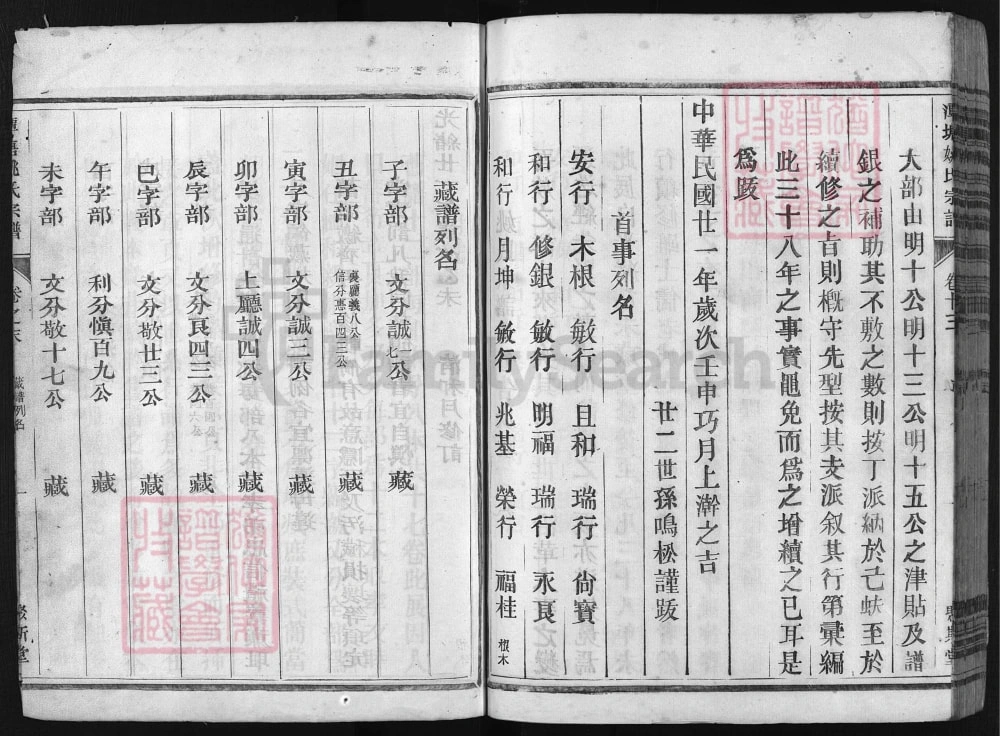 大部由明十公明十三公明十五公之津貼及譜
銀之補助其不敷之數則按丁派納於己蚨至於
續修之㫖則槪守先型按其支派叙其行第彙編
此三十八年之事實黽免而爲之增續之已耳是
爲䟦
中華民國廿一年歲次壬申巧月上澣之吉
廿二世孫鳴松謹跋
首事列名
安行 木根 敏行 且和 瑞行 尙寶
和行 修銀 敏行 明福 瑞行 永良
和行 月坤 敏行 兆基 榮行 福桂 根木
藏譜列名
子字部 文分誠一七公 藏
丑字部 奠廳義八公 信分惠百四三公 藏
寅字部 文分誠三公 藏
卯字部 上廳誠四公 藏
辰字部 文分良四三公 藏
巳字部 文分敬廿三公 藏
午字部 利分愼百九公 藏
未字部 文分敬十七公 藏
姚氏宗譜 卷十三
姚氏宗譜 卷之末 藏譜列名 一
FamilySearch